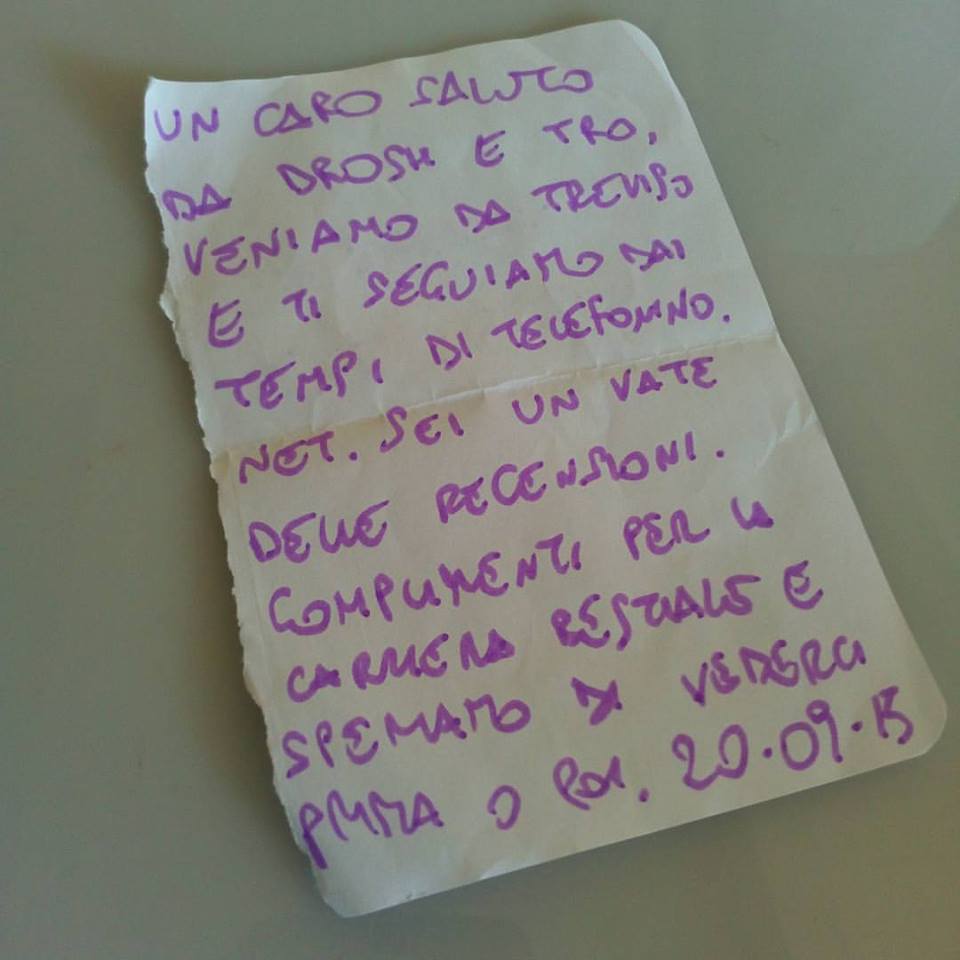 UN CARO SALUTO
DA DROSH E TRO,
VENIAMO DA TREVISO
E TI SEGUIAMO DAI
TEMPI DI TELEFONINO.
NET. SEI UN VATE
DELLE RECENSIONI.
COMPLIMENTI PER LA
CARRIERA BESTIALE E
SPERIAMO DI VEDERCI
PRIMA O POI. 20.09.15